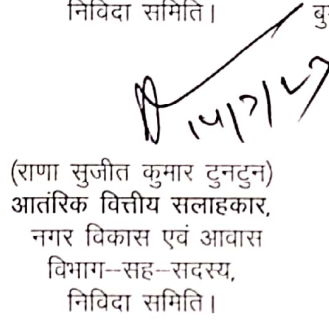 निविदा समिति। बु
(राणा सुजीत कुमार टुनटुन)
आतंरिक वित्तीय सलाहकार,
नगर विकास एवं आवास
विभाग--सह--सदस्य,
निविदा समिति।